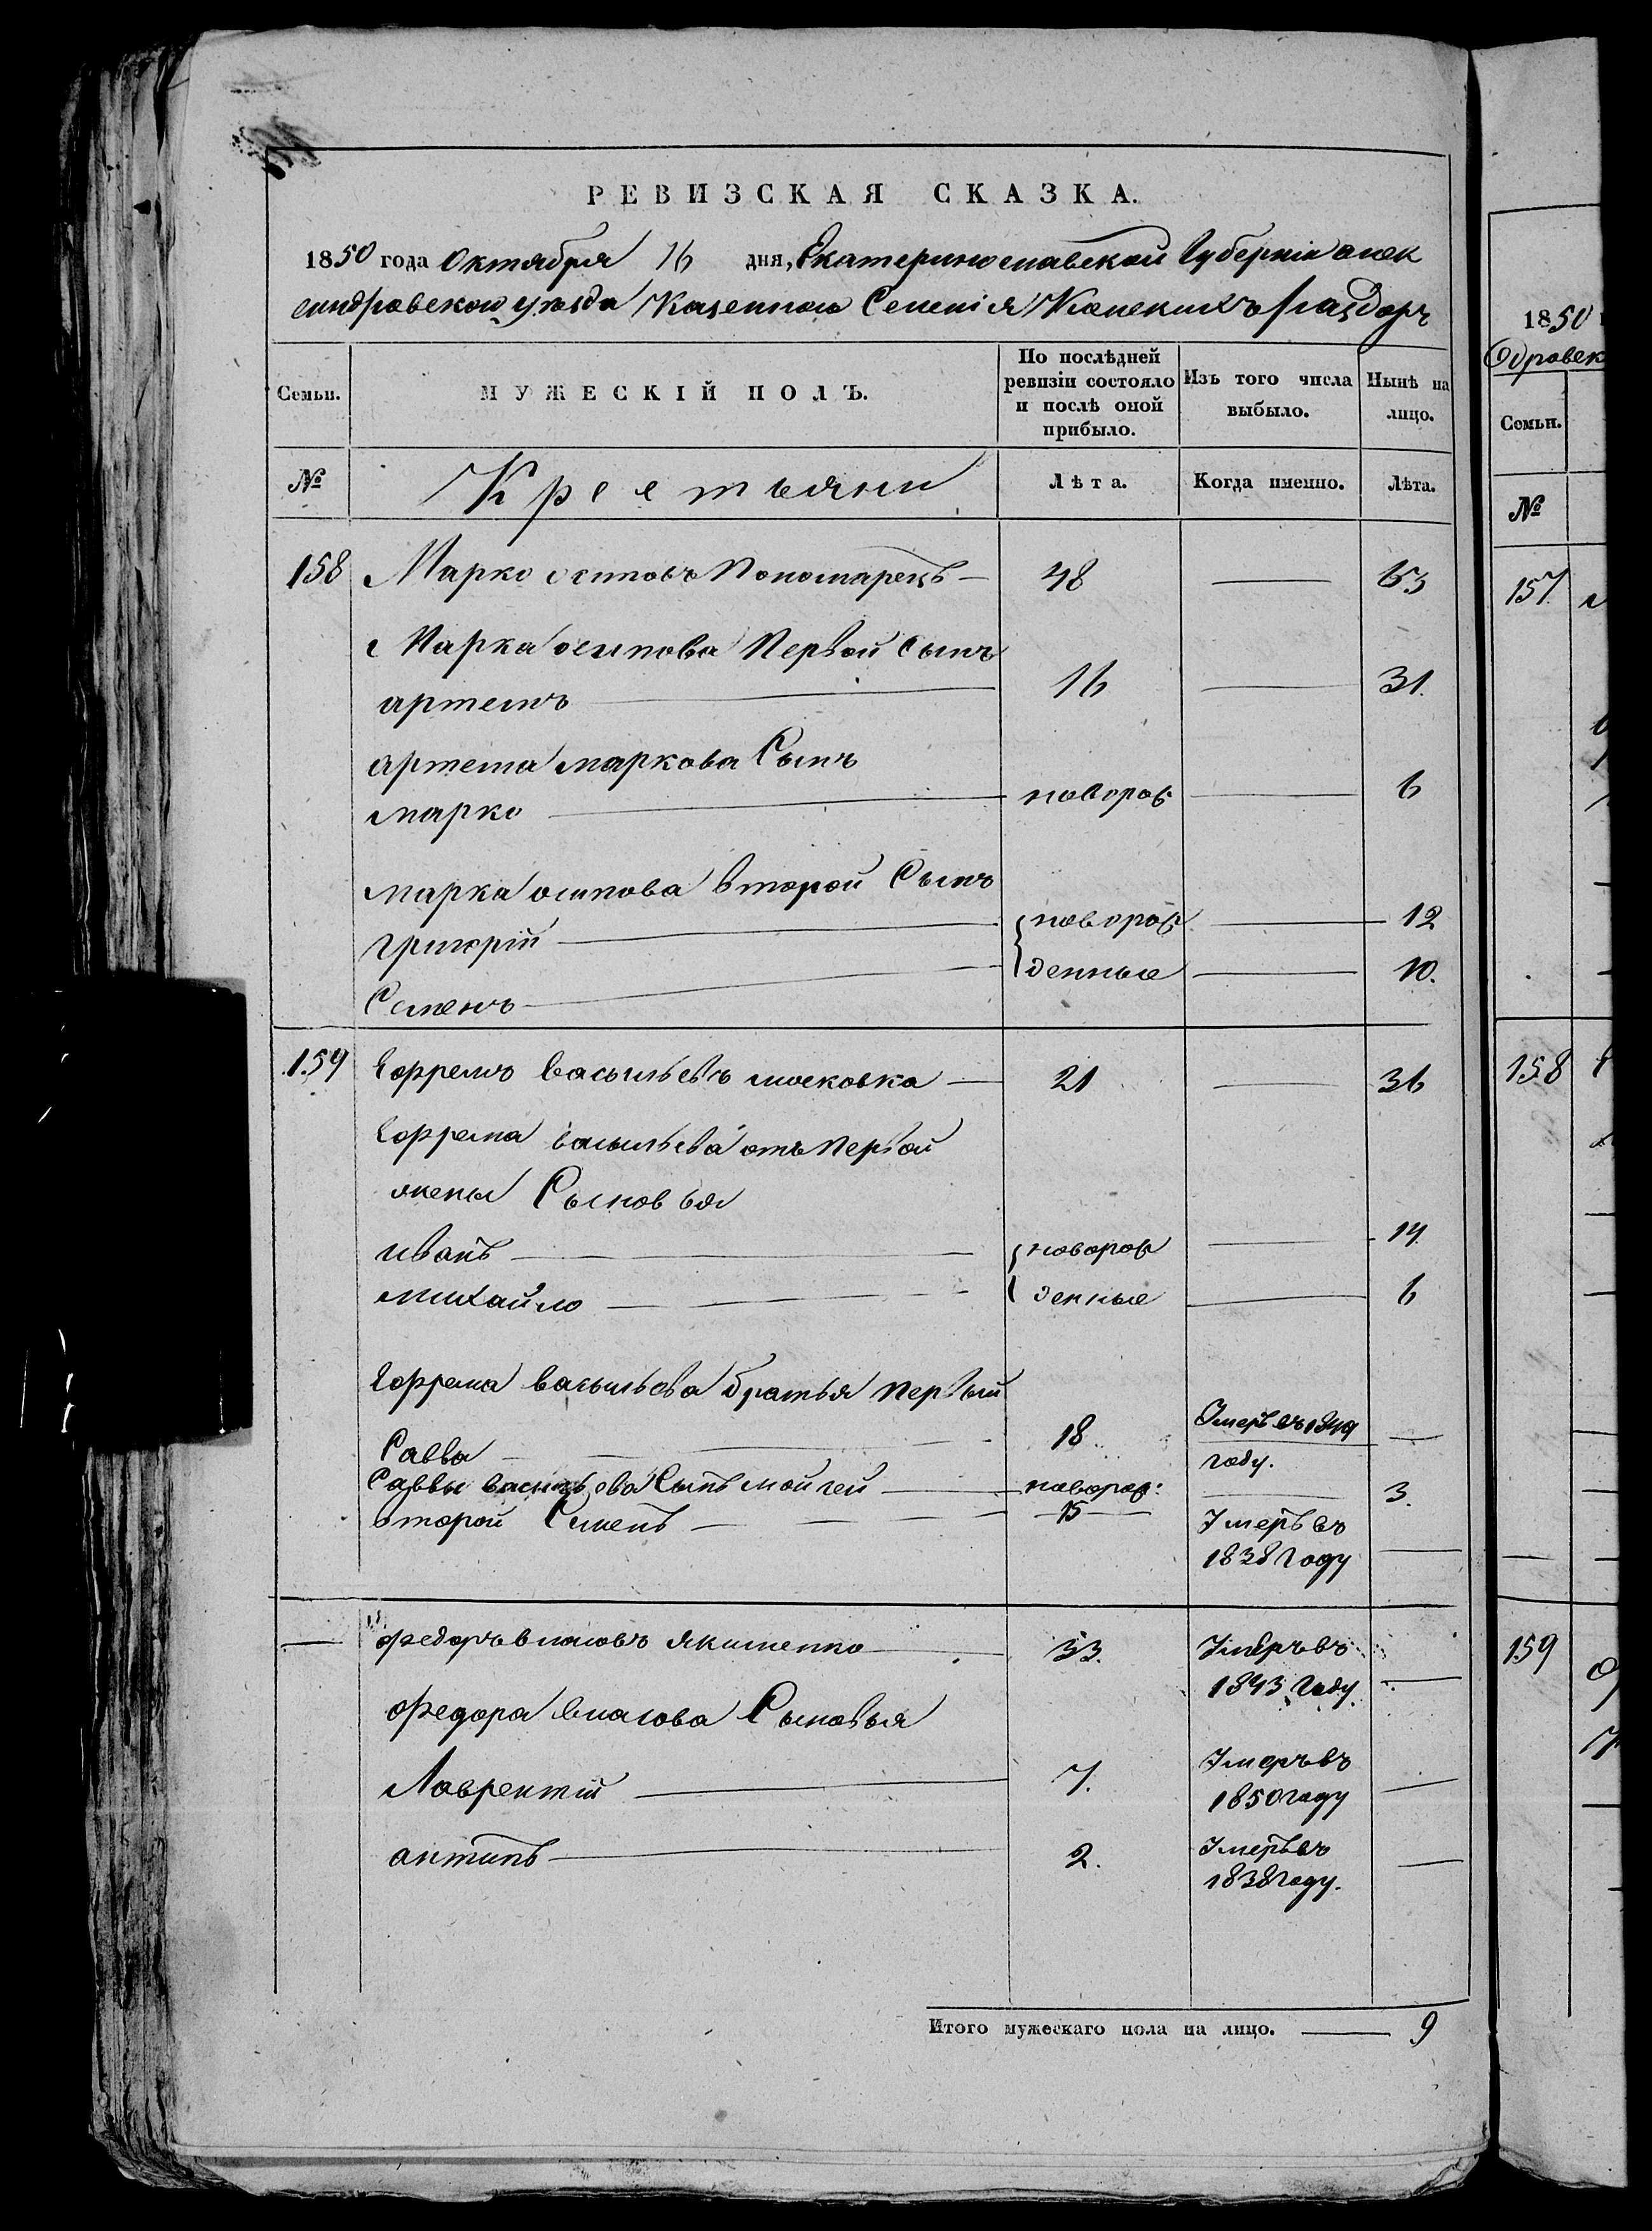 РЕВИЗСКАЯ СКАЗКА.
1850 года Октября 16 дня, Екатеринославской Губерніи алек
сандровского уезда Казенного Селенія Конскихъ раздоръ
Семьи. МУЖЕСКІЙ ПОЛЪ. По послѣдней ревизіи состояло и послѣ оной прибыло. Изъ того числа выбыло. Нынѣ на лицо.
№ Крестьяни Лѣта. Когда именно. Лѣта.
158 Марко осиповъ Пономарецъ 48 — 63
Марка осипова Первой Сынъ
артемъ 16 — 31.
артема маркова Сынъ
марко новорож — 6
марка осипова второй Сынъ
григорій новорож — 12
Семенъ денные — 10.
159 Ефремъ Васильевъ московка 21 — 36
Ефрема васильева отъ Первой
жены Сыновья
иванъ новорож — 14.
михайло денные — 6
Ефрема васильева братья первый
Савва 18 Умеръ въ 1849 году. —
Саввы васильева Сынъ мойсей новорож: — 3.
второй Семенъ 15 Умеръ въ
1838 Году —
— федоръ власовъ якименко 33. Умеръ въ
1843 Году. —
федора власова Сыновья
Лаврентій 7. Умеръ въ
1850 году —
антипъ 2. Умеръ въ
1838 году. —
Итого мужескаго пола на лицо. — 9
1850
дровск
Семьи.
№
157
158
159